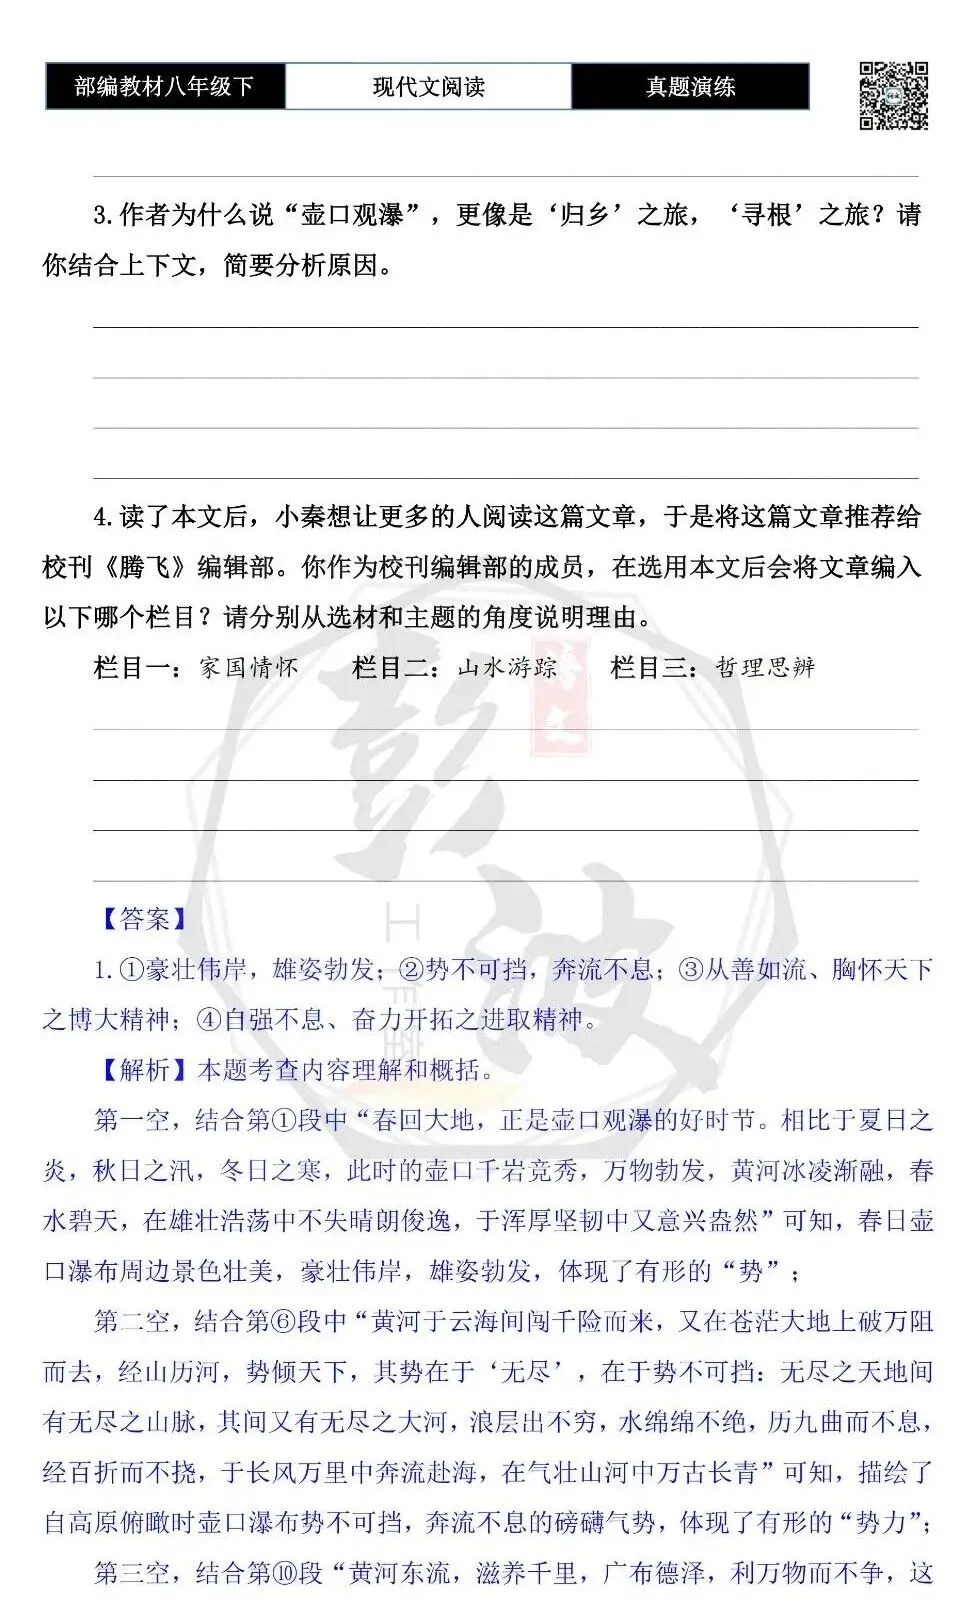 部编教材八年级下 现代文阅读 真题演练
3.作者为什么说“壶口观瀑”，更像是‘归乡’之旅，‘寻根’之旅？请
你结合上下文，简要分析原因。
4.读了本文后，小秦想让更多的人阅读这篇文章，于是将这篇文章推荐给
校刊《腾飞》编辑部。你作为校刊编辑部的成员，在选用本文后会将文章编入
以下哪个栏目？请分别从选材和主题的角度说明理由。
栏目一：家国情怀 栏目二：山水游踪 栏目三：哲理思辨
【答案】
1.①豪壮伟岸，雄姿勃发；②势不可挡，奔流不息；③从善如流、胸怀天下
之博大精神；④自强不息、奋力开拓之进取精神。
【解析】本题考查内容理解和概括。
第一空，结合第①段中“春回大地，正是壶口观瀑的好时节。相比于夏日之
炎，秋日之汛，冬日之寒，此时的壶口千岩竞秀，万物勃发，黄河冰凌渐融，春
水碧天，在雄壮浩荡中不失晴朗俊逸，于浑厚坚韧中又意兴盎然”可知，春日壶
口瀑布周边景色壮美，豪壮伟岸，雄姿勃发，体现了有形的“势”；
第二空，结合第⑥段中“黄河于云海间闯千险而来，又在苍茫大地上破万阻
而去，经山历河，势倾天下，其势在于‘无尽’，在于势不可挡：无尽之天地间
有无尽之山脉，其间又有无尽之大河，浪层出不穷，水绵绵不绝，历九曲而不息，
经百折而不挠，于长风万里中奔流赴海，在气壮山河中万古长青”可知，描绘了
自高原俯瞰时壶口瀑布势不可挡，奔流不息的磅礴气势，体现了有形的“势力”；
第三空，结合第⑩段“黄河东流，滋养千里，广布德泽，利万物而不争，这
彭波
工作室